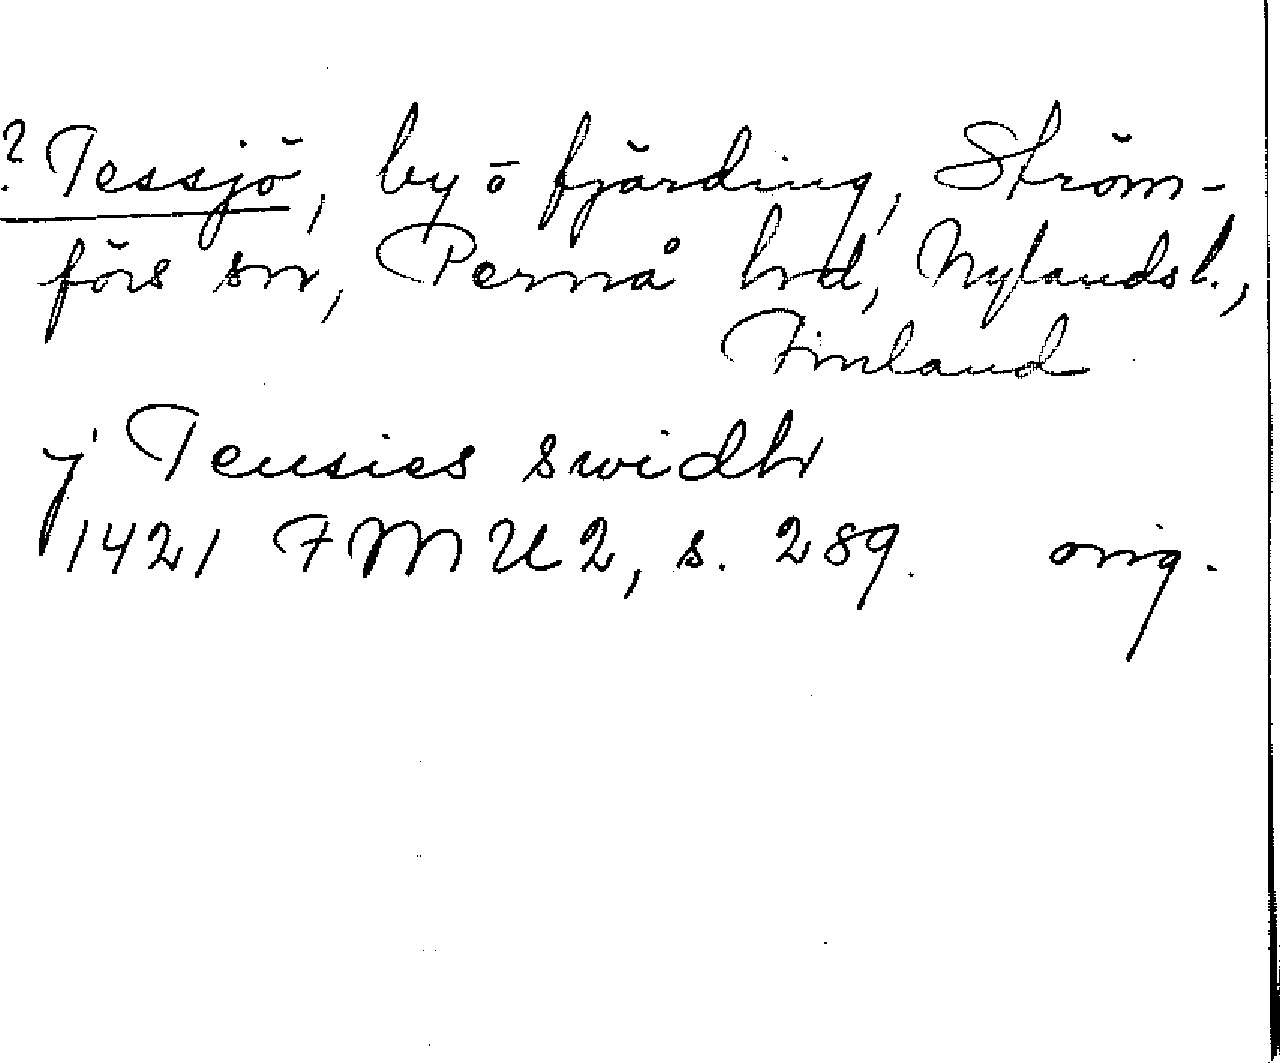 ? Tessjö, by o fjärding, Ström-
fors sn, Pernå hd, Nylands l.,
Finland
j Tensies swidh
1421 FMU 2, s. 289. orig.